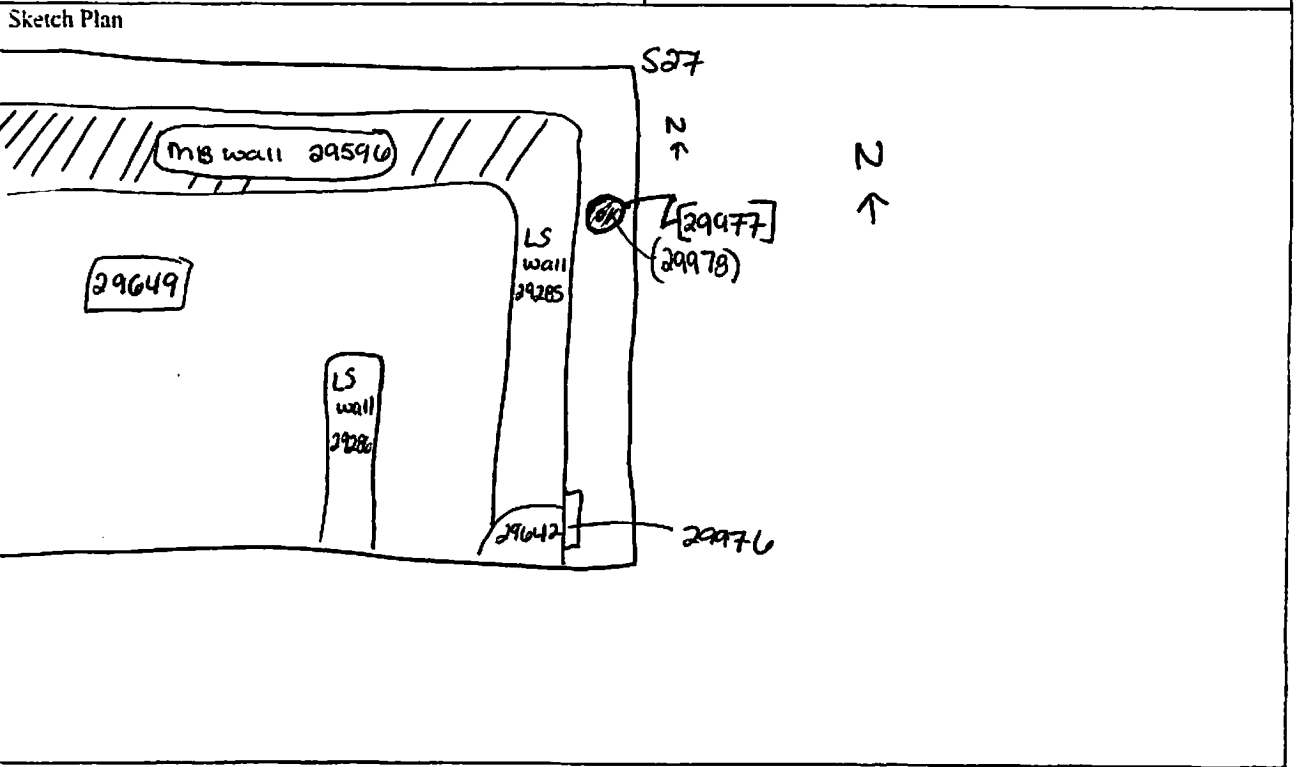 Sketch Plan
S27
N
N
MB wall 29596
[29977]
(29978)
LS
wall
29285
29649
LS
wall
29286
29642
29976